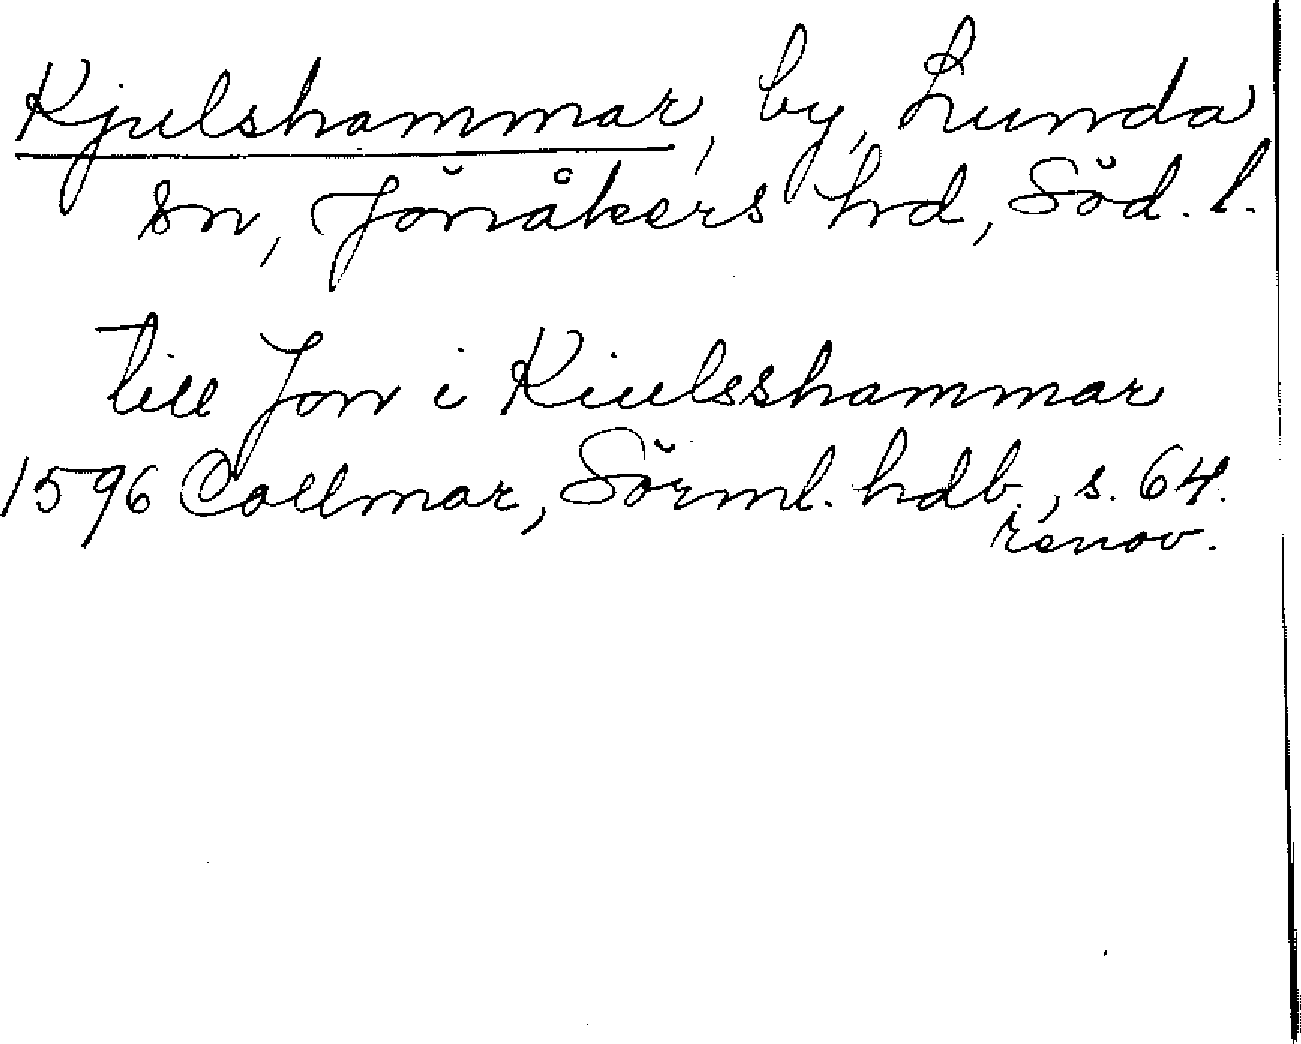 Kjulshammar, by, Lunda
sn, Jönåkers hd, Söd. l.
till Jon i Kiulsshammar
1596 Collmar, Sörml. hdb., s. 64.
renov.